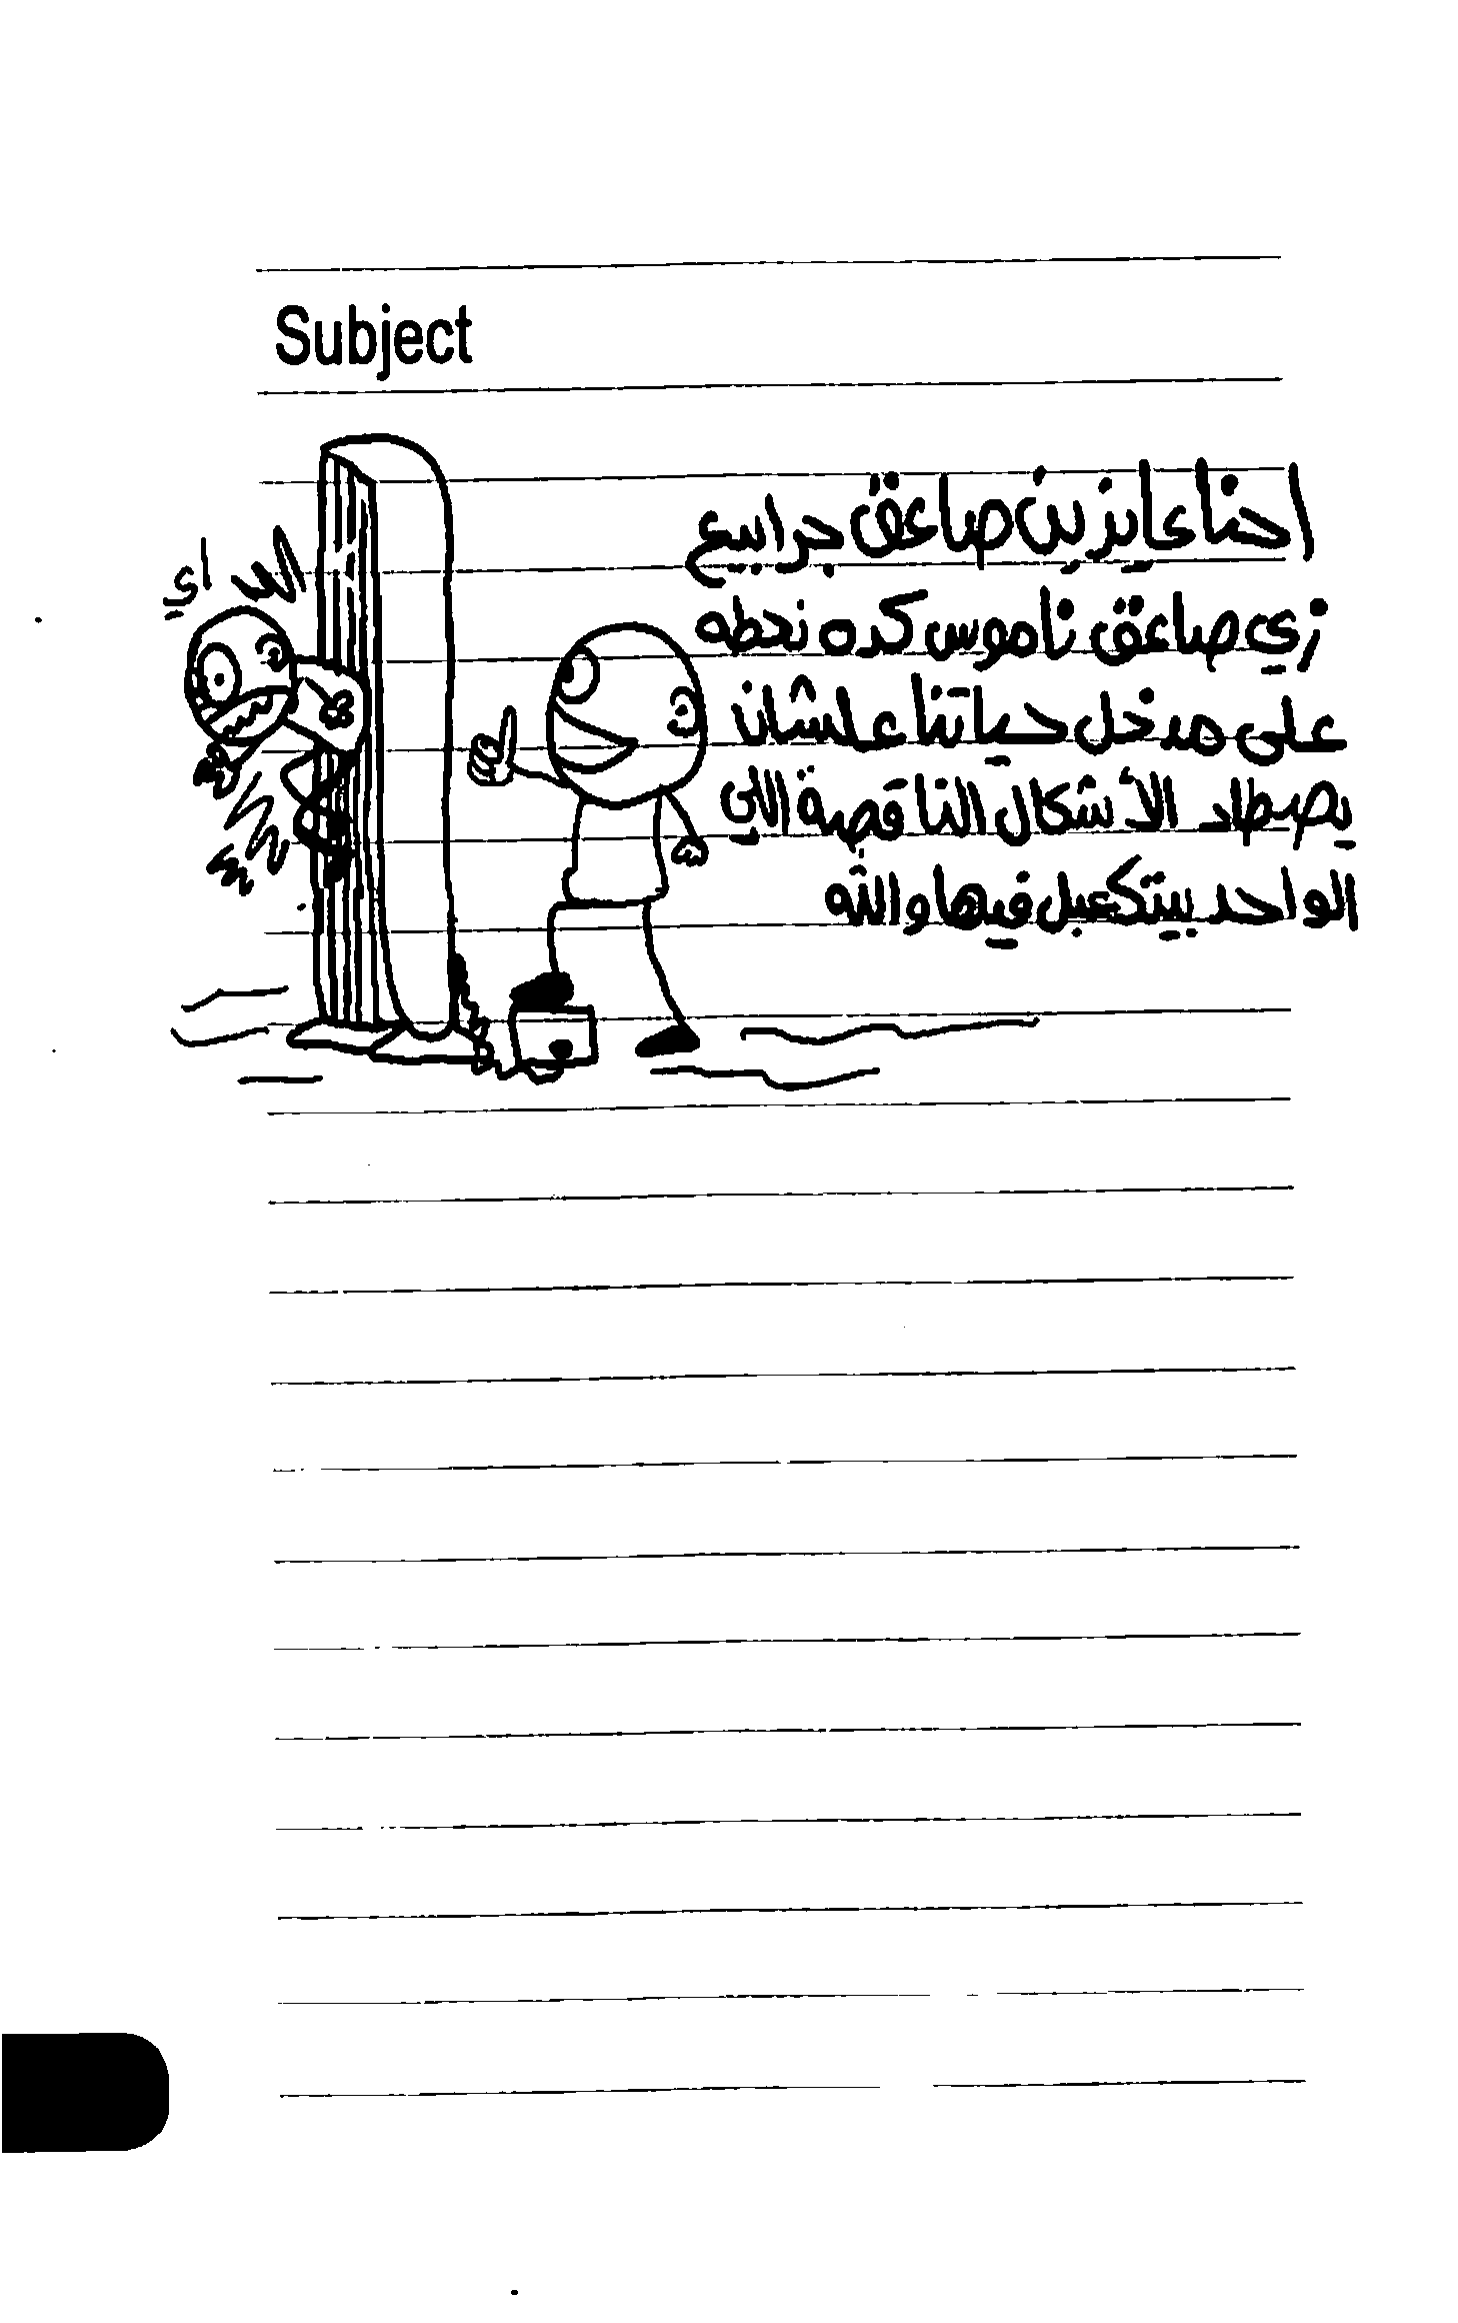 Subject
احنا عايزين صاعق جرابيع
زي صاعق ناموس كده نحطه
على مدخل حياتنا علشان
يصطاد الأشكال الناقصة اللي
الواحد بيتكعبل فيها والله
اي